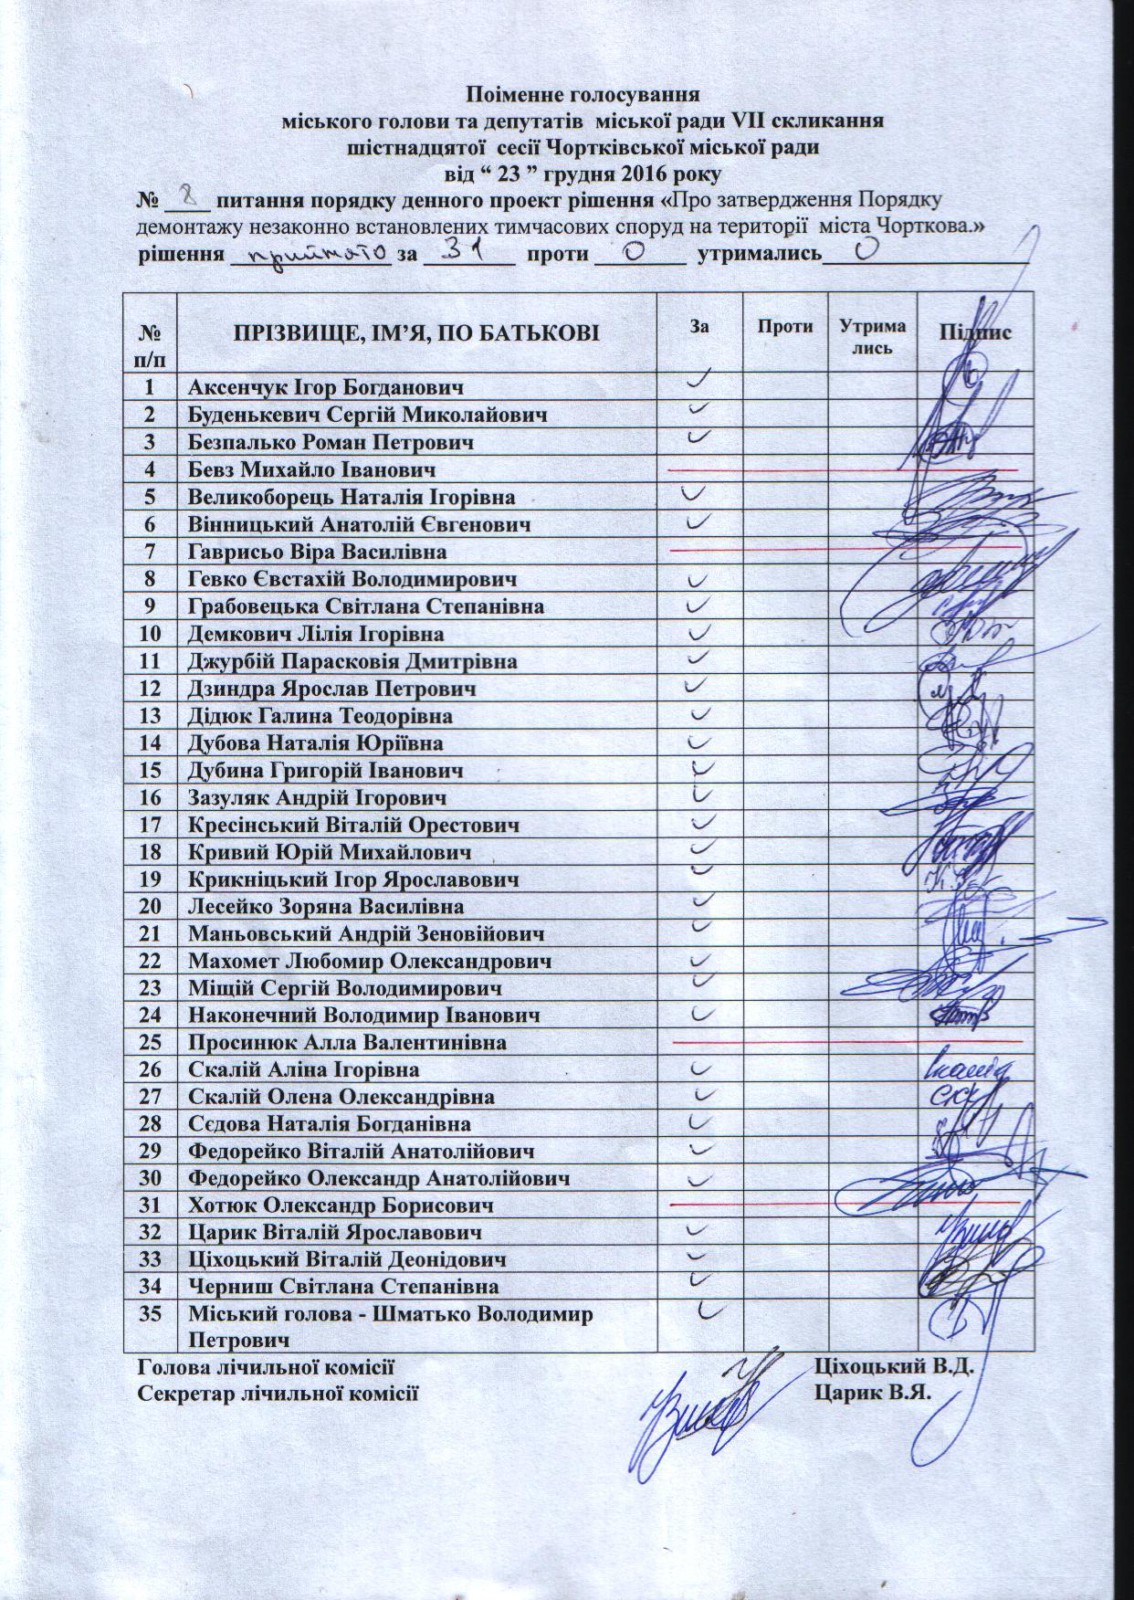 Поіменне голосування
міського голови та депутатів міської ради VII скликання
шістнадцятої сесії Чортківської міської ради
від “ 23 ” грудня 2016 року
№ 8 питання порядку денного проект рішення «Про затвердження Порядку
демонтажу незаконно встановлених тимчасових споруд на території міста Чорткова.»
рішення прийнято за 31 проти 0 утримались 0
№ п/п ПРІЗВИЩЕ, ІМ’Я, ПО БАТЬКОВІ За Проти Утрима лись Підпис
1 Аксенчук Ігор Богданович ✓
2 Буденькевич Сергій Миколайович ✓
3 Безпалько Роман Петрович ✓
4 Бевз Михайло Іванович
5 Великоборець Наталія Ігорівна ✓
6 Вінницький Анатолій Євгенович ✓
7 Гаврисьо Віра Василівна
8 Гевко Євстахій Володимирович ✓
9 Грабовецька Світлана Степанівна ✓
10 Демкович Лілія Ігорівна ✓
11 Джурбій Парасковія Дмитрівна ✓
12 Дзиндра Ярослав Петрович ✓
13 Дідюк Галина Теодорівна ✓
14 Дубова Наталія Юріївна ✓
15 Дубина Григорій Іванович ✓
16 Зазуляк Андрій Ігорович ✓
17 Кресінський Віталій Орестович ✓
18 Кривий Юрій Михайлович ✓
19 Крикніцький Ігор Ярославович ✓
20 Лесейко Зоряна Василівна ✓
21 Маньовський Андрій Зеновійович ✓
22 Махомет Любомир Олександрович ✓
23 Міщій Сергій Володимирович ✓
24 Наконечний Володимир Іванович ✓
25 Просинюк Алла Валентинівна
26 Скалій Аліна Ігорівна ✓
27 Скалій Олена Олександрівна ✓
28 Сєдова Наталія Богданівна ✓
29 Федорейко Віталій Анатолійович ✓
30 Федорейко Олександр Анатолійович ✓
31 Хотюк Олександр Борисович
32 Царик Віталій Ярославович ✓
33 Ціхоцький Віталій Деонідович ✓
34 Черниш Світлана Степанівна ✓
35 Міський голова - Шматько Володимир ✓
Петрович
Голова лічильної комісії Ціхоцький В.Д.
Секретар лічильної комісії Царик В.Я.